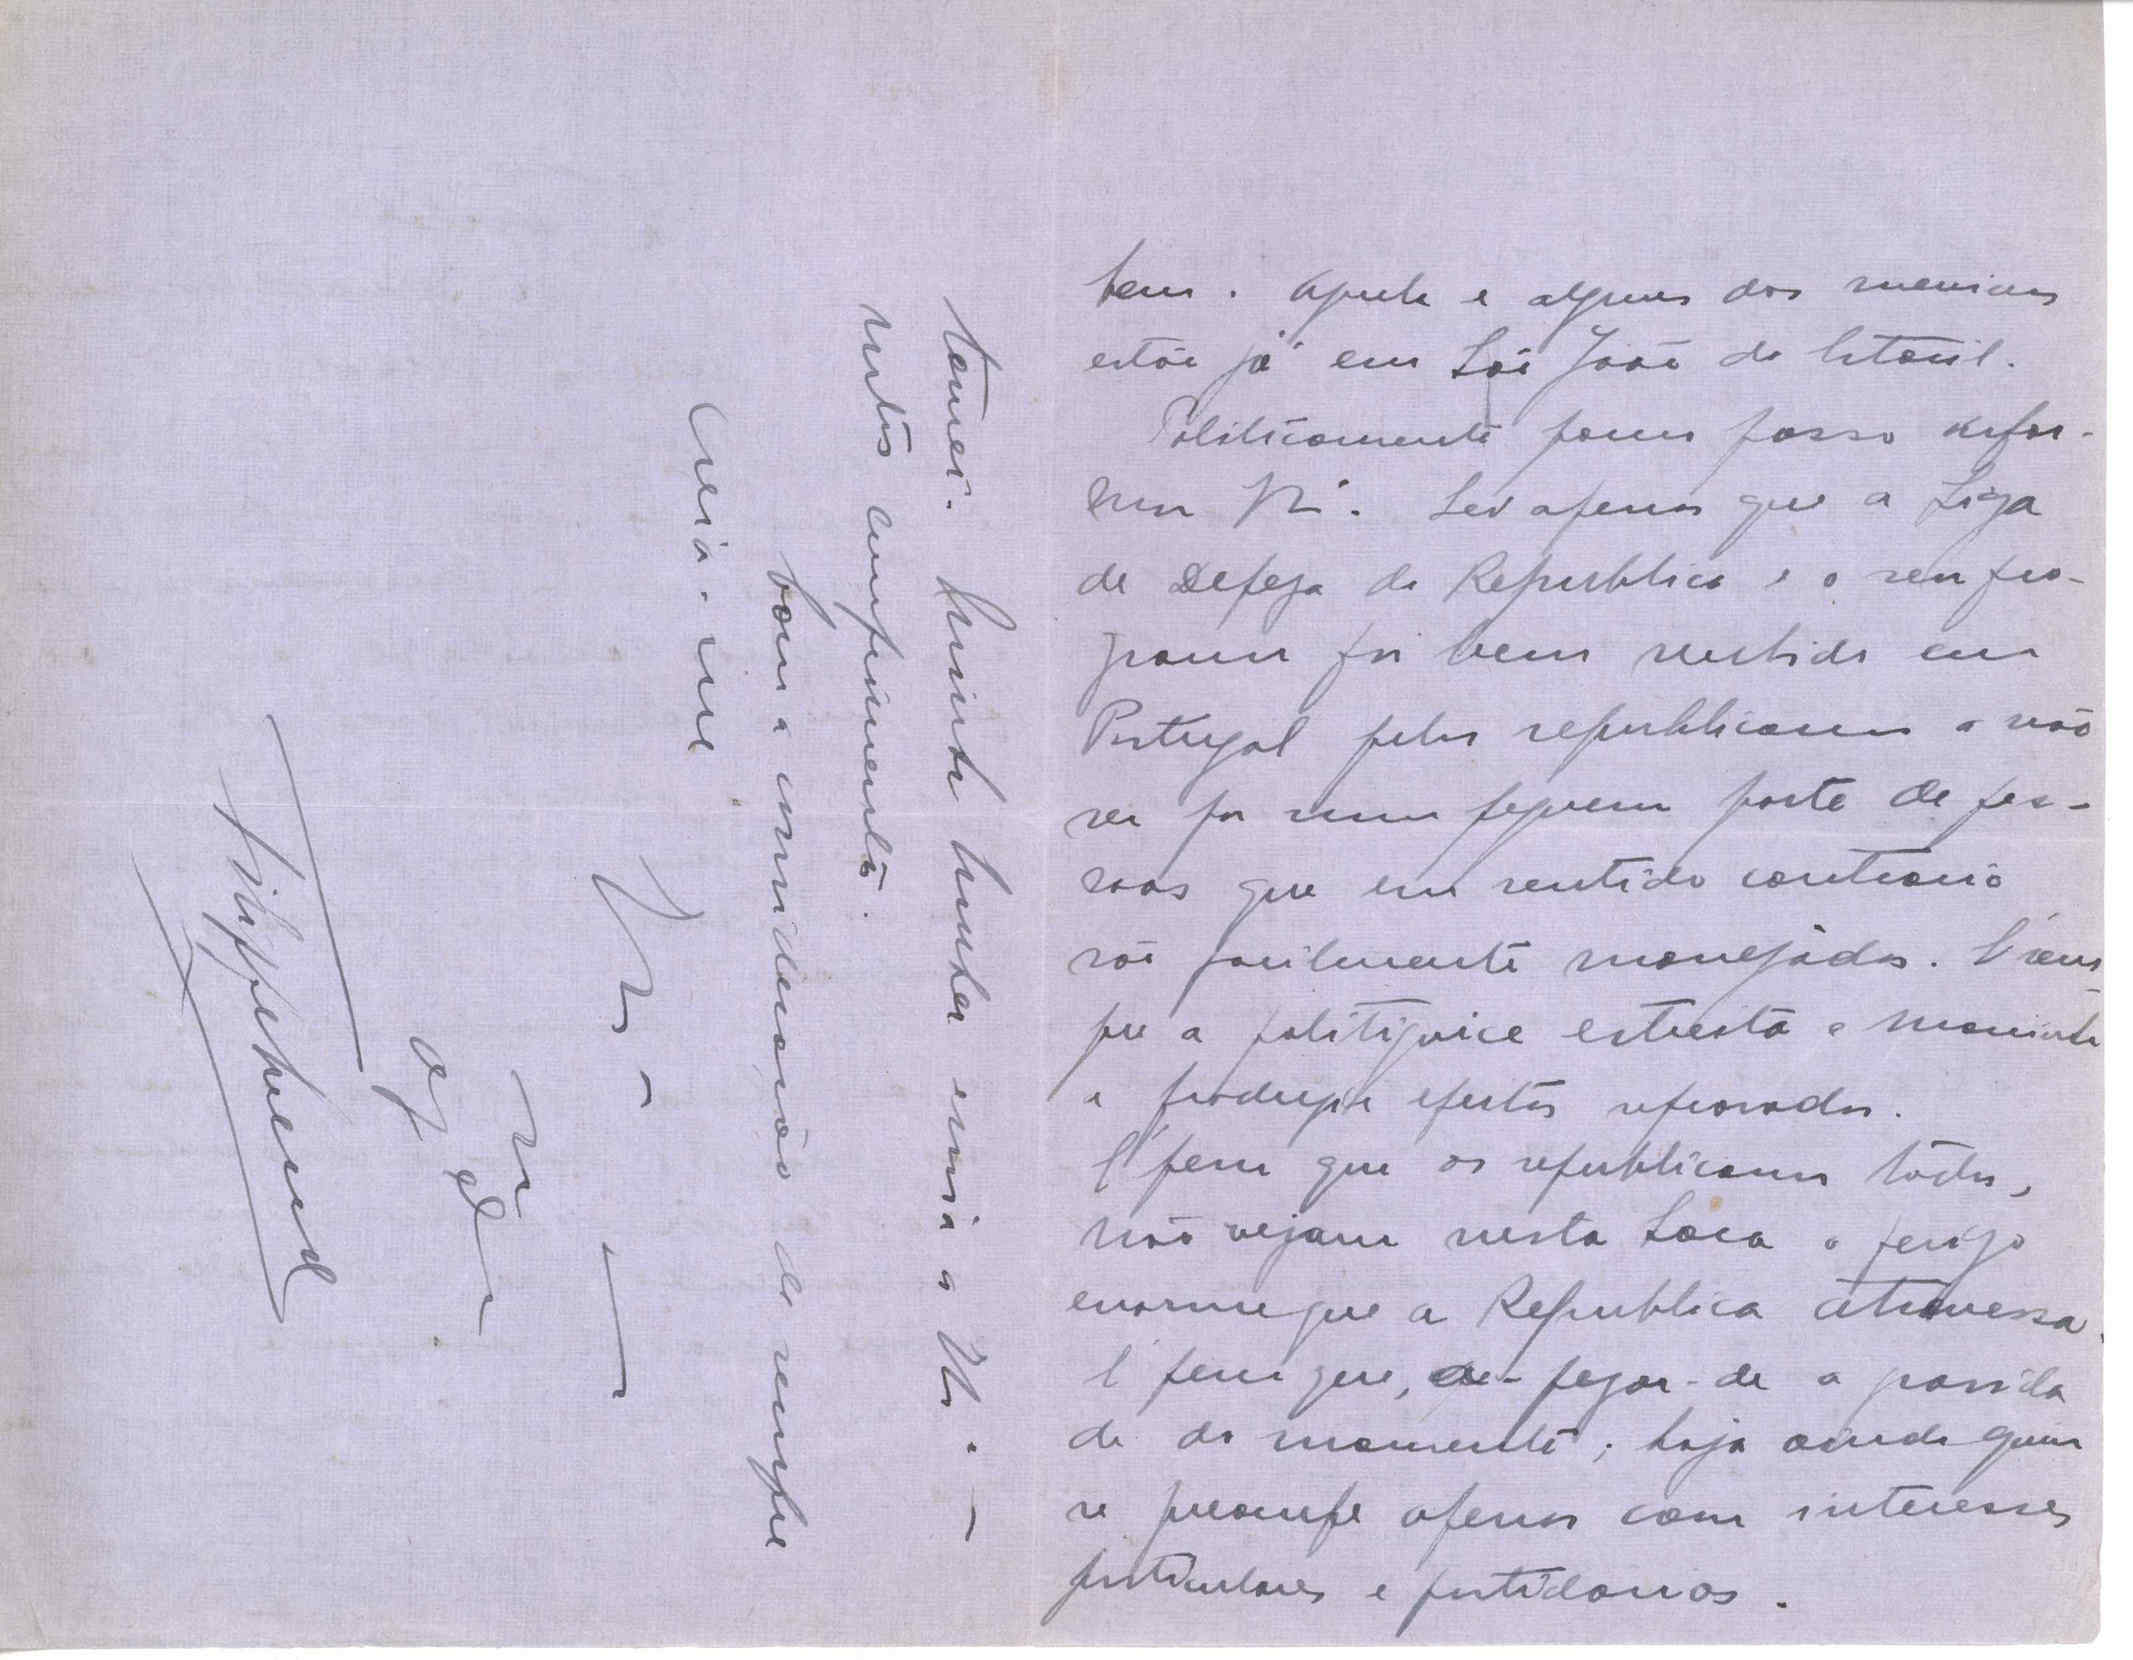 bem. Aquela e alguns dos meninos
estão já em São João do Estoril.
Politicamente pouco posso infor-
mar V. Sei apenas que a Liga
de Defeza da Republica e o seu pro-
grama foi bem recebido em
Portugal pelos republicanos a não
ser por uma pequena parte de pes-
soas que em sentido contrario
são facilmente manejadas. É sem-
pre a politiquice estreita e
a produzir efeitos
É pena que os republicanos todos,
não vejam nesta hora o perigo
enorme que a Republica atravessa.
É pena que, a-pezar-de a gravida
de do momento, haja ainda quem
se preocupe apenas com interesses
particulares e partidarios.
tomei. Minha mulher envia a V.
muitos cumprimentos.
com a consideração de sempre
Creia-me
De V.